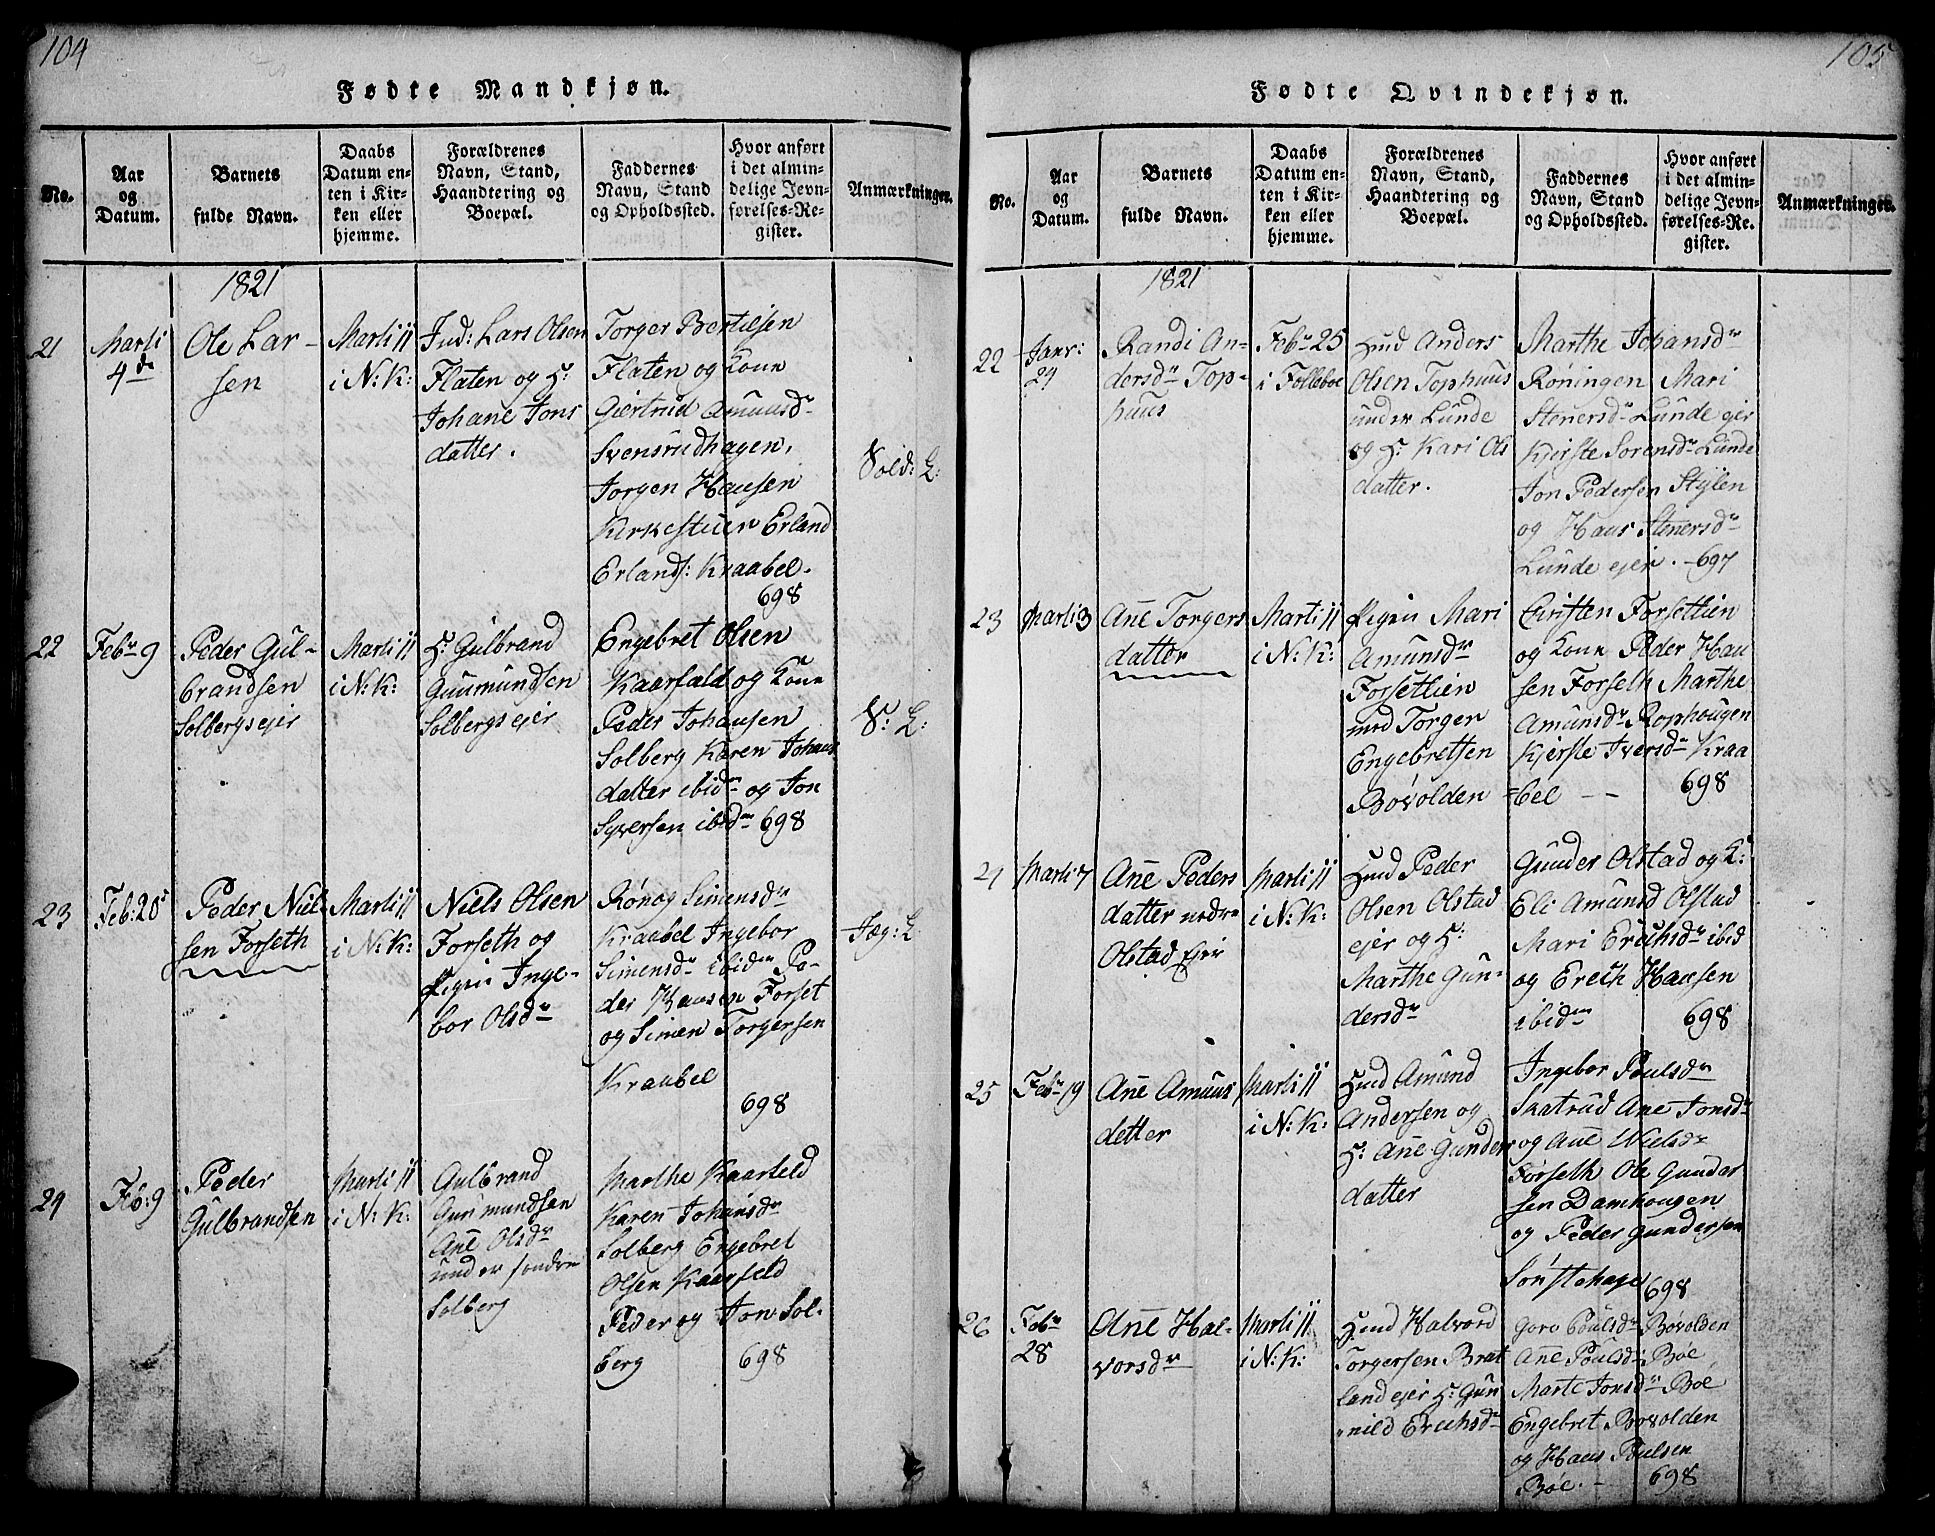 104
Fødte Mandkjøn.
No.
Aar
og
Datum.
Barnets
fulde Navn.
Daabs
Datum en-
ten i Kir-
ken eller
hjemme.
Forældrenes
Navn, Stand,
Haandtering og
Boepæl.
Faddernes
Navn, Stand
og Opholdssted.
Hvor anført
i det almin-
delige Jevn-
førelses-Re-
gister.
Anmærkninger.
1821
21
Marti
4de
Ole Lar-
sen
Marti 11
i N: K:
Ind: Lars Olsen
Flaten og H:
Johane Jons
datter.
Torger Bertilsen
Flaten og Kone
Giertrud Amunsd
Svensrudhagen,
Jorgen Hansen
Kirkestuen Erland
Erlands: Kraabel.
698
Sold: L:
22
Febr 9
Peder Gul-
brandsen
Solbergsejer
Marti 11
i N: K:
H: Gulbrand
Guumundsen
Solbergsejer
Engebret Olsen
Kaarfald og Kone
Peder Johansen
Solberg Karen Johans
datter ibidm og Jon
Syversen ibidm 698
S: L:
23
Feb: 20
Peder Niel-
sen Forseth
Marti 11
i N: K:
Niels Olsen
Forseth og
Pigen Inge-
bor Olsdr
Rønog Simensdr
Kraabel Ingebor
Simensdr ibidm Pe-
der Hansen Forset
og Simen Torgersen
Kraabel
698
Jæg: L
24
Feb: 9
Peder
Gulbrandsen
Marti 11
i N: K:
Gulbrand
Gunmundsen
Ane Olsdr
under søndre
Solberg
Marthe Kaarfeld
Karen Johansdr
Solberg Engebret
Olsen Kaarfeld
Peder og Jon Sol-
berg
698
105
Fødte Qvindekjøn.
No.
Aar
og
Datum.
Barnets
fulde Navn.
Daabs
Datum en-
ten i Kir-
ken eller
hjemme.
Forældrenes
Navn, Stand,
Haandtering og
Boepæl.
Faddernes
Navn, Stand
og Opholdssted.
Hvor anført
i det almin-
delige Jevn-
førelses-Re-
gister.
Anmærkninger.
1821
22
Janr:
24
Randi An-
dersdr Top-
huus
Febr 25
i Folleboe
Huusmd Anders
Olsen Tophuus
under Lunde
og H: Kari Ols
datter.
Marthe Johansdr
Røningen Mari
Stenersdr Lunde ejer
Kjerste Sorensdr Lunde
Jon Pedersen Stylen
og Hans Stenersdr
Lunde ejer. - 697
23
Marti 3
Ane Torgers
datter
Marti 11
i N: K:
Pigen Mari
Amunsdr
Forsetlien
med Torgen
Engebretsen
Bøvolden
Christen Forsetlien
og Kone Peder Han
sen Forseth Marthe
Amunsdr Rophougen
Kjerste Iversdr Kraa
bel - -
698
24
Marti 7
Ane Peders
datter nedre
Olstad Ejer
Marti 11
i N: K:
Peder
Olsen Olstad
ejer og H:
Marthe Gun-
dersdr
Gunder Olstad og K:
Eli Amund Olstad
Mari Erichsdr ibid
og Erich Hansen
ibidm
698
25
Febr 19
Ane Amuns
detter
Marti 11
i N: K:
Amund
Andersen og
H: Ane Gunders
datter
Ingebor Poulsdr
Skatrud Ane Jonsdr
og Ane Nielsdr
Forseth Ole Gunder
sen Damhougen
og Peder Gundersen
698
26
Febr
28
Ane Hal-
vorsdr
Marti 11
i N: K:
Halvord
Torgersen Brat
land ejer H: Gun
nild Erichsdr
Goro Poulsdr Bøvolden
Ane Poulsdr Bøe
Marte Jonsdr Bøe
Engebret Bøvolden
og Hans Poulsen
Bøe. - 698